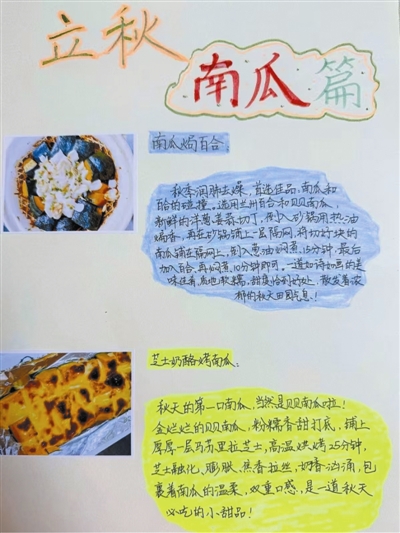 立秋
南瓜篇
南瓜焗百合
秋季润肺去燥，首选佳品，南瓜和
百合的碰撞。选用兰州百合和贝贝南瓜，
新鲜的洋葱姜蒜切丁，倒入砂锅用热油
煸香，再在砂锅铺上一层隔网，将切好块的
南瓜铺在隔网上，倒入葱油焖煮，15分钟，最后
加入百合，再焖煮，10分钟即可。一道如诗如画的美
味佳肴，底也软糯，甜度恰到好处，散发着浓
郁的秋天田园气息！
芝士奶酪烤南瓜。
秋天的第一口南瓜，当然是贝贝南瓜啦！
金灿灿的贝贝南瓜，粉糯香甜打底，铺上
厚厚一层马苏里拉芝士，高温烘烤25分钟，
芝士融化、膨胀、焦香拉丝，奶香汹涌，包
裹着南瓜的温柔，双重口感，是一道秋天
必吃的小甜品！